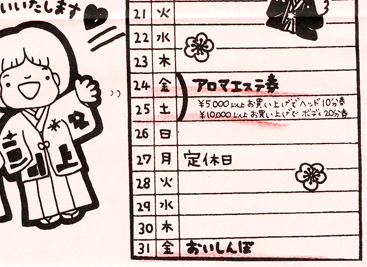 いいたします♥
21 火
22 水
23 木
24 金 アロマエステ券
25 土 ¥5,000以上お買い上げでヘッド10分券
¥10,000以上お買い上げでボディ20分券
26 日
27 月 定休日
28 火
29 水
30 木
31 金 おいしんぼ